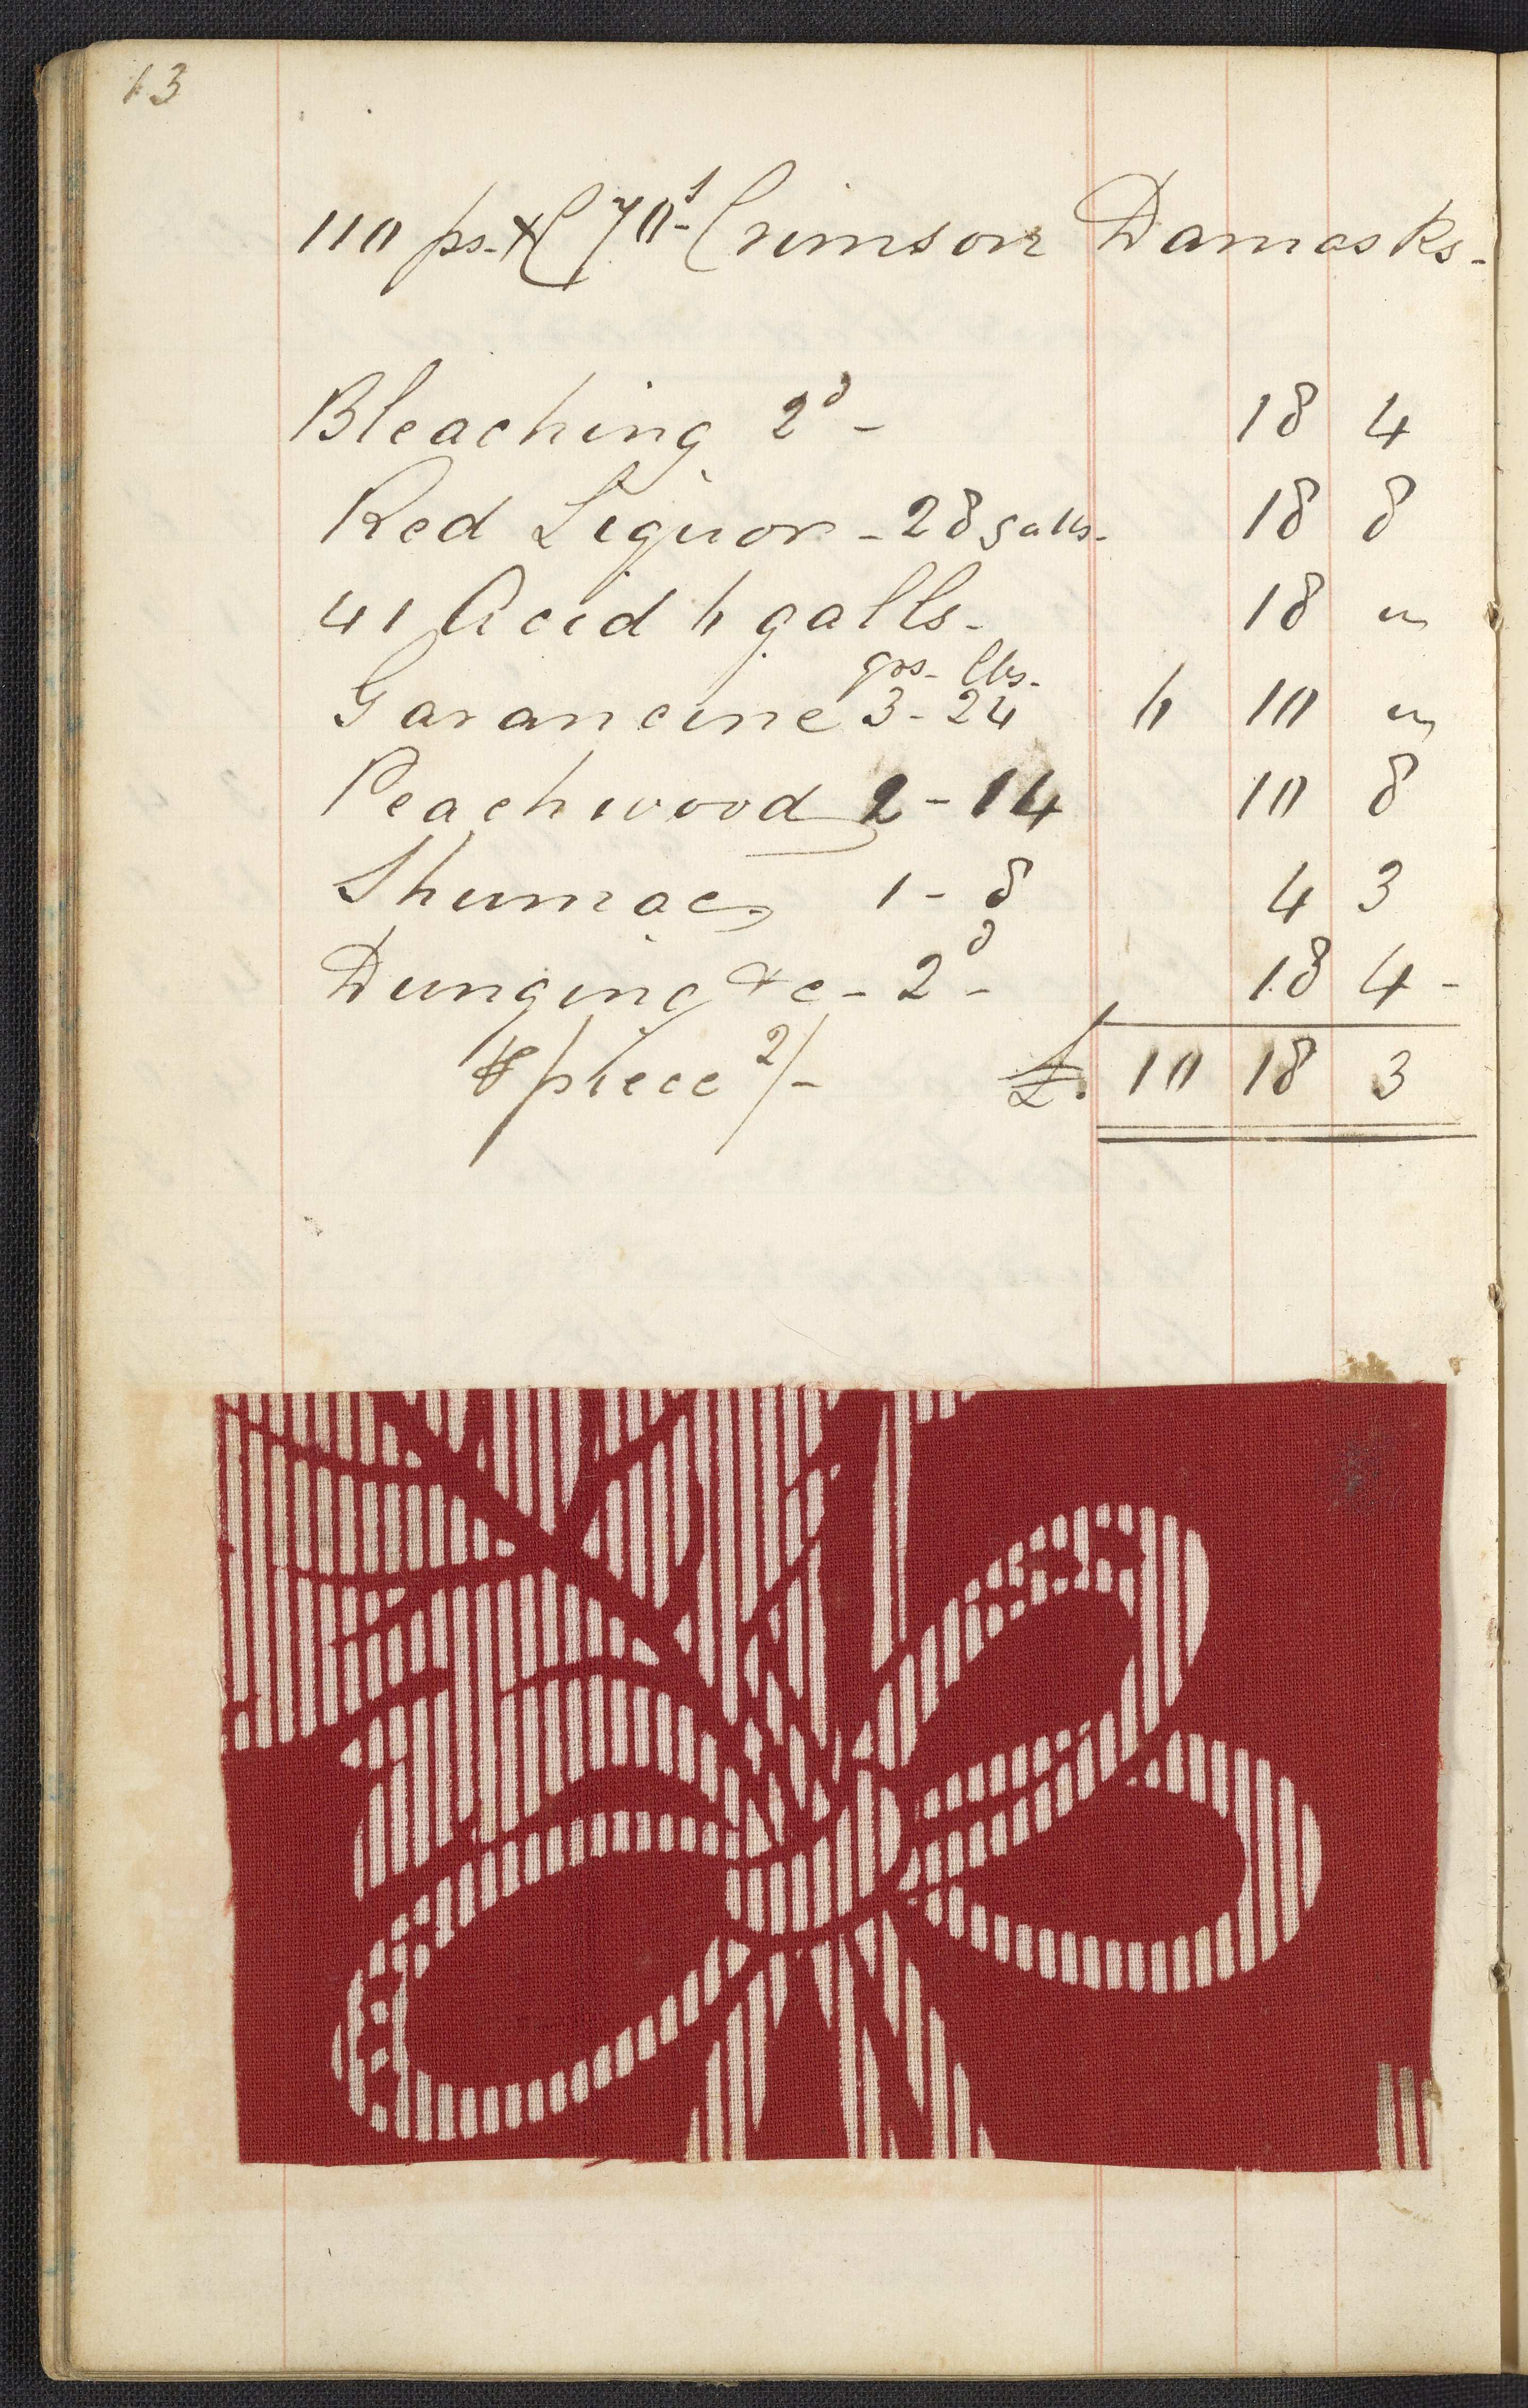 13
110 ps. 70s Crimson Damasks -
Bleaching 2d - 18 4
Red Liquor - 28 galls - 18 8
41 Acid 6 galls - 18 "
qrs - lbs -
Garancine 3 - 24 6 10 "
Peachwood 2 - 14 10 8
Shumac 1 - 8 4 3
Dunging &c - 2d - 18 4 -
℔ piece 2/- £ 10 18 3